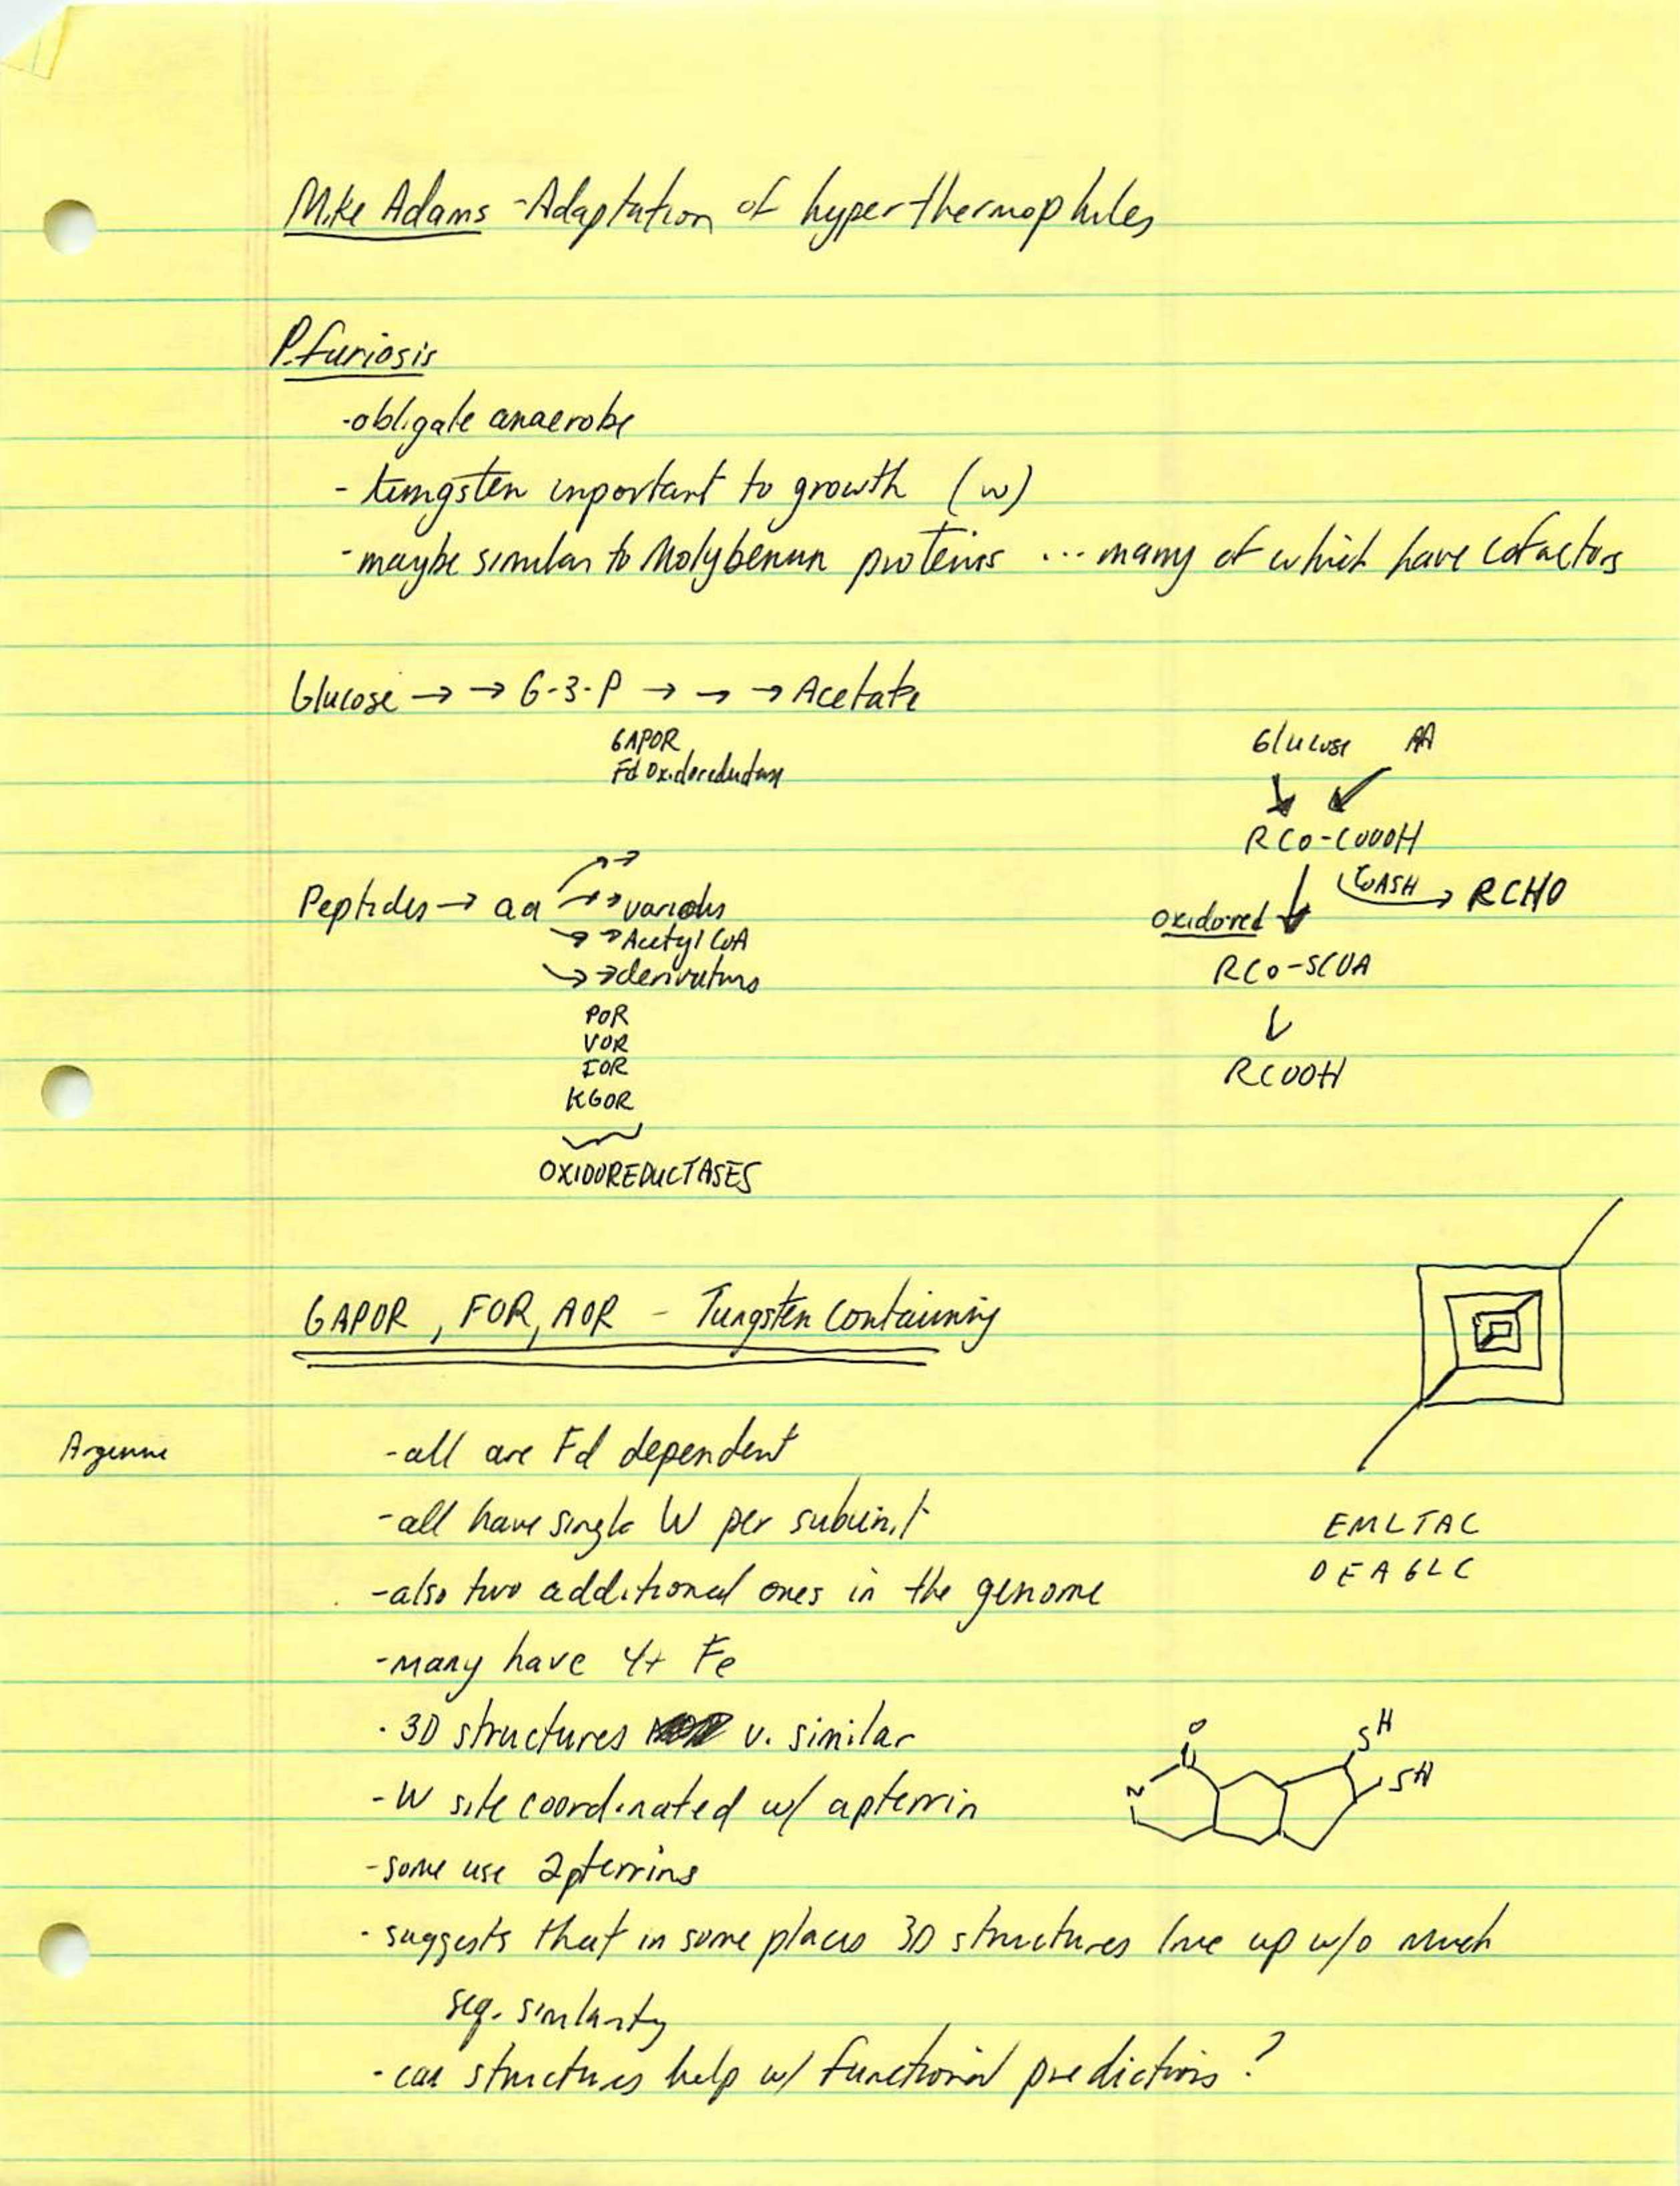 Mike Adams - Adaptation of hyperthermophiles
P. furiosis
- obligate anaerobe
- tungsten important to growth (w)
- maybe similar to Molybenun proteins ... many of which have cofactors
Glucose → → G-3-P → → → Acetate
GAPOR
Fd Oxidoreductase
Glucose AA
RCO-COOOH
COASH → RCHO
Oxidored
RCO-SCOA
RCOOH
Peptides → aa → → various
→ → Acetyl CoA
→ → derivatives
POR
VOR
IOR
KGOR
OXIDOREDUCTASES
GAPOR, FOR, AOR - Tungsten Containing
Argenne
- all are Fd dependent
- all have single W per subunit
- also two additional ones in the genome
- many have 4+ Fe
- 3D structures v. similar
- W site coordinated w/ a pterrin
- some use 2 pterrins
- suggests that in some places 3D structures line up w/o much
seq. similarity
- can structures help w/ functional predictions?
EMLTAC
DEAGLC
O
C
N
SH
SH